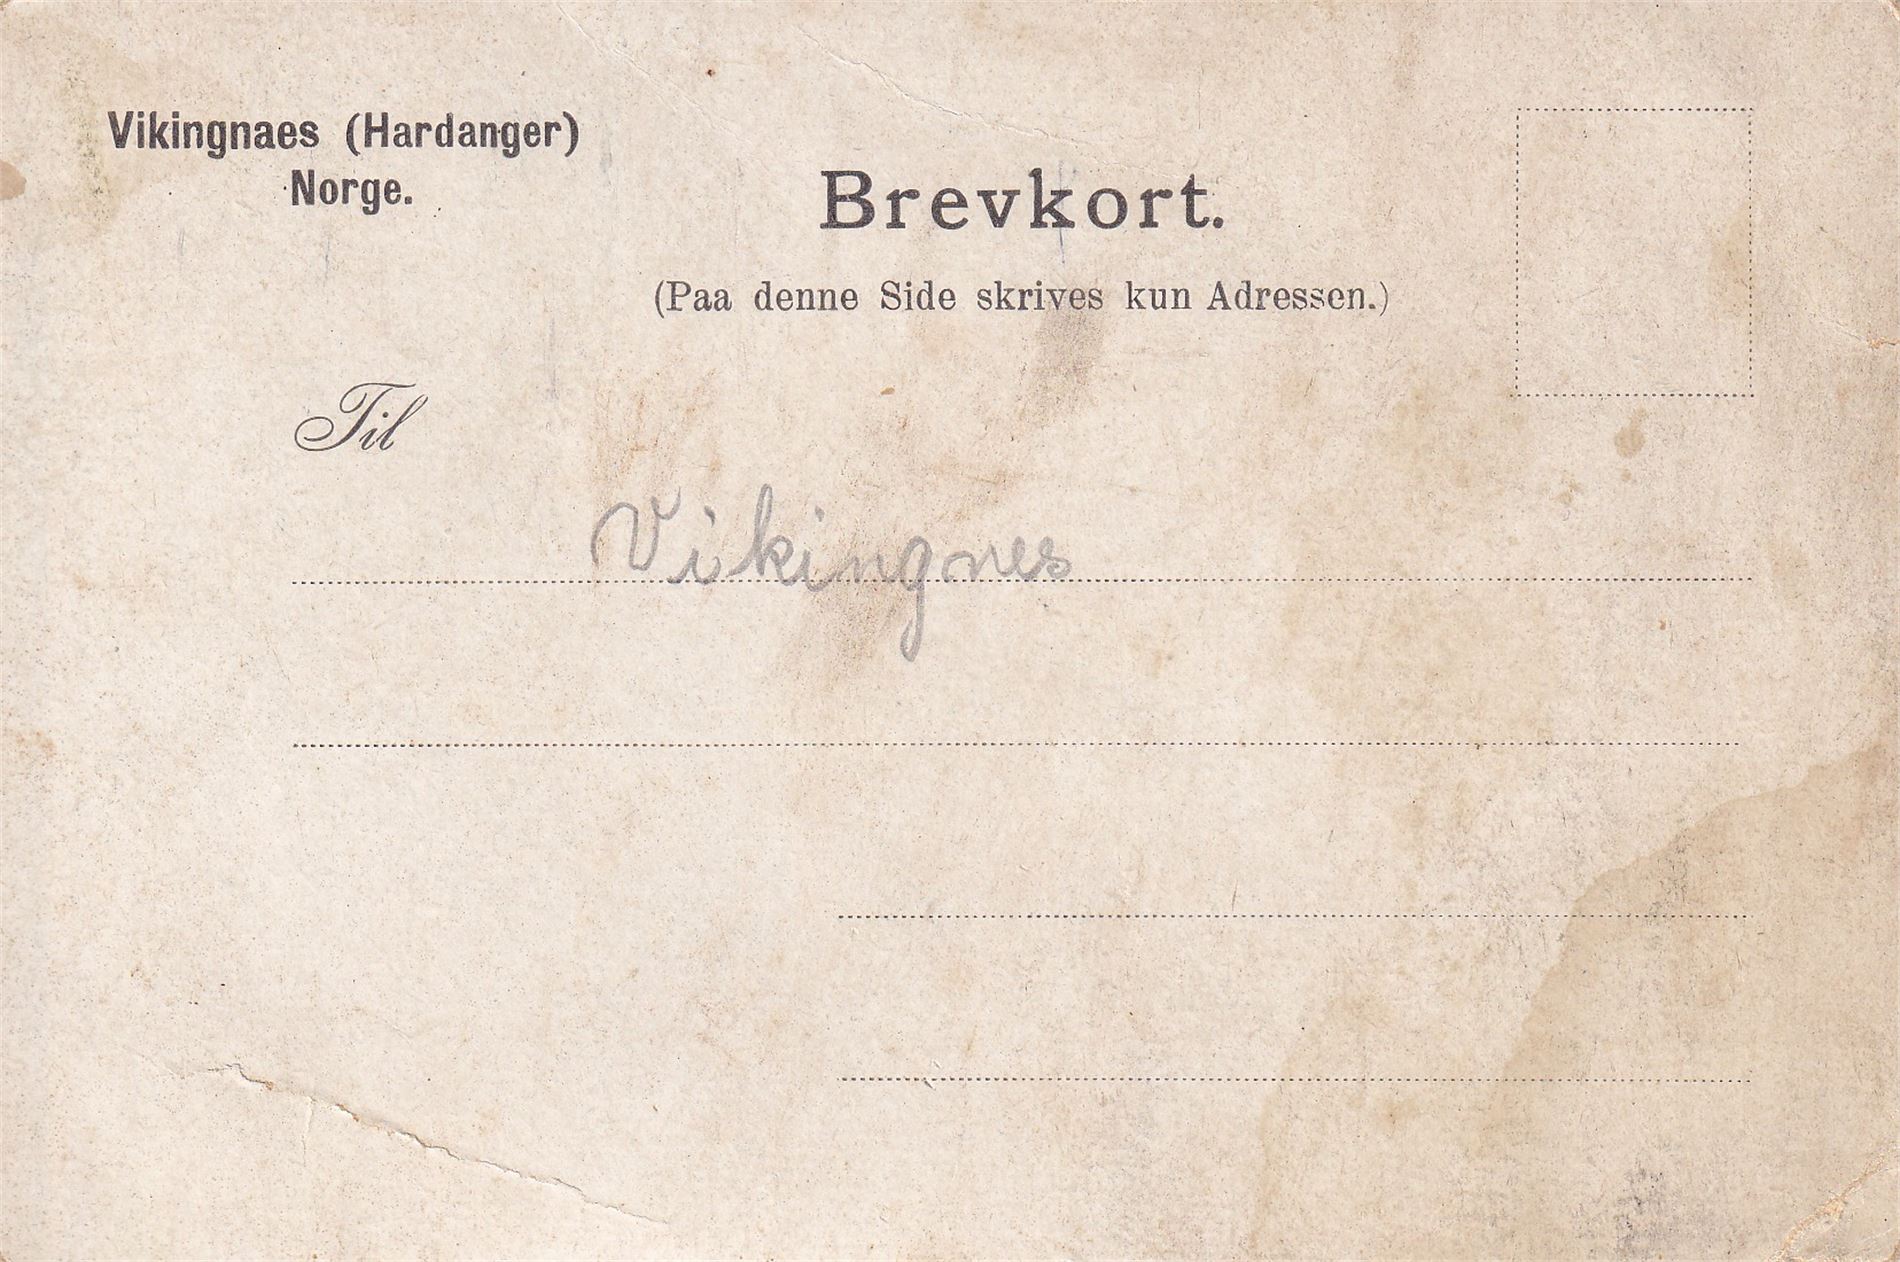 Vikingnaes (Hardanger)
Norge.
Brevkort.
(Paa denne Side skrives kun Adressen.)
Til
Vikingnes